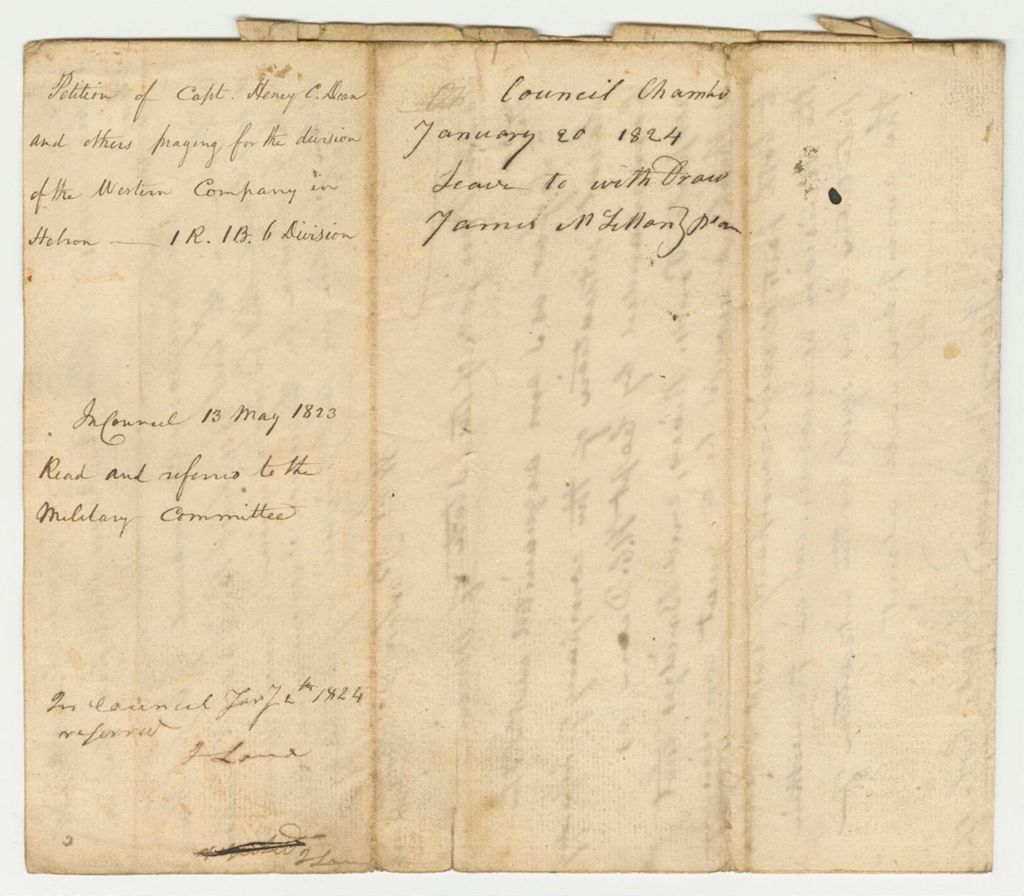 Petition of Capt. Henry C. Dean
and others praying for the division
of the Western Company in
Hebron — 1 R. 1 B. 6 Division
In Council 13 May 1823
Read and referred to the
Military Committee
In Council Jany 2th 1824
referred
J Lane
J Lane
Council Chamber
January 20 1824
Leave to with Draw
James